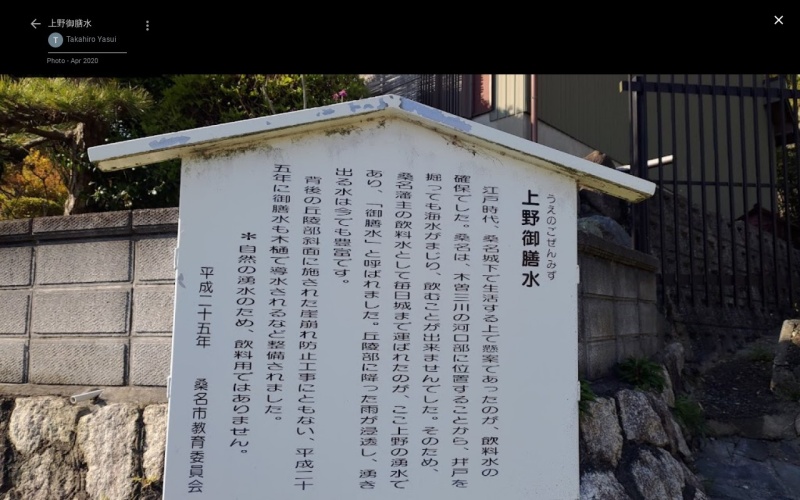 上野御膳水
T
Takahiro Yasui
Photo - Apr 2020
うえのごぜんみず
上野御膳水
江戸時代、桑名城下で生活する上で懸案であったのが、飲料水の
確保でした。桑名は、木曽三川の河口部に位置することから、井戸を
掘っても海水がまじり、飲むことが出来ませんでした。そのため、
桑名藩主の飲料水として毎日城まで運ばれたのが、ここ上野の湧水で
あり、「御膳水」と呼ばれました。丘陵部に降った雨が浸透し、湧き
出る水は今でも豊富です。
背後の丘陵部斜面に施された崖崩れ防止工事にともない、平成二十
五年に御膳水も木樋で導水されるなど整備されました。
＊自然の湧水のため、飲料用ではありません。
平成二十五年　桑名市教育委員会